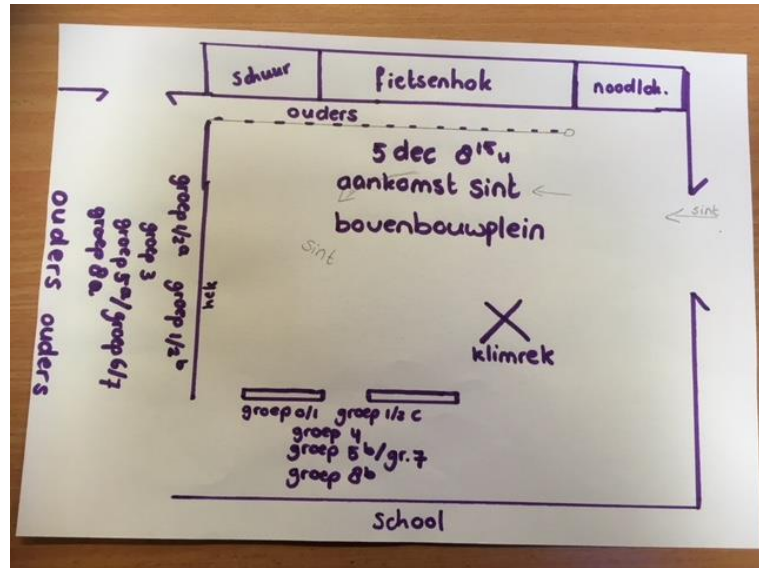 schuur
fietsenhok
noodlok.
ouders
5 dec 8¹⁵u
aankomst sint
sint
bovenbouwplein
sint
klimrek
hek
groep 1/2a groep 1/2b
groep 3
groep 5a/groep 6/7
groep 8a
ouders ouders
groep 0/1 groep 1/2 c
groep 4
groep 5b/gr.7
groep 8b
School